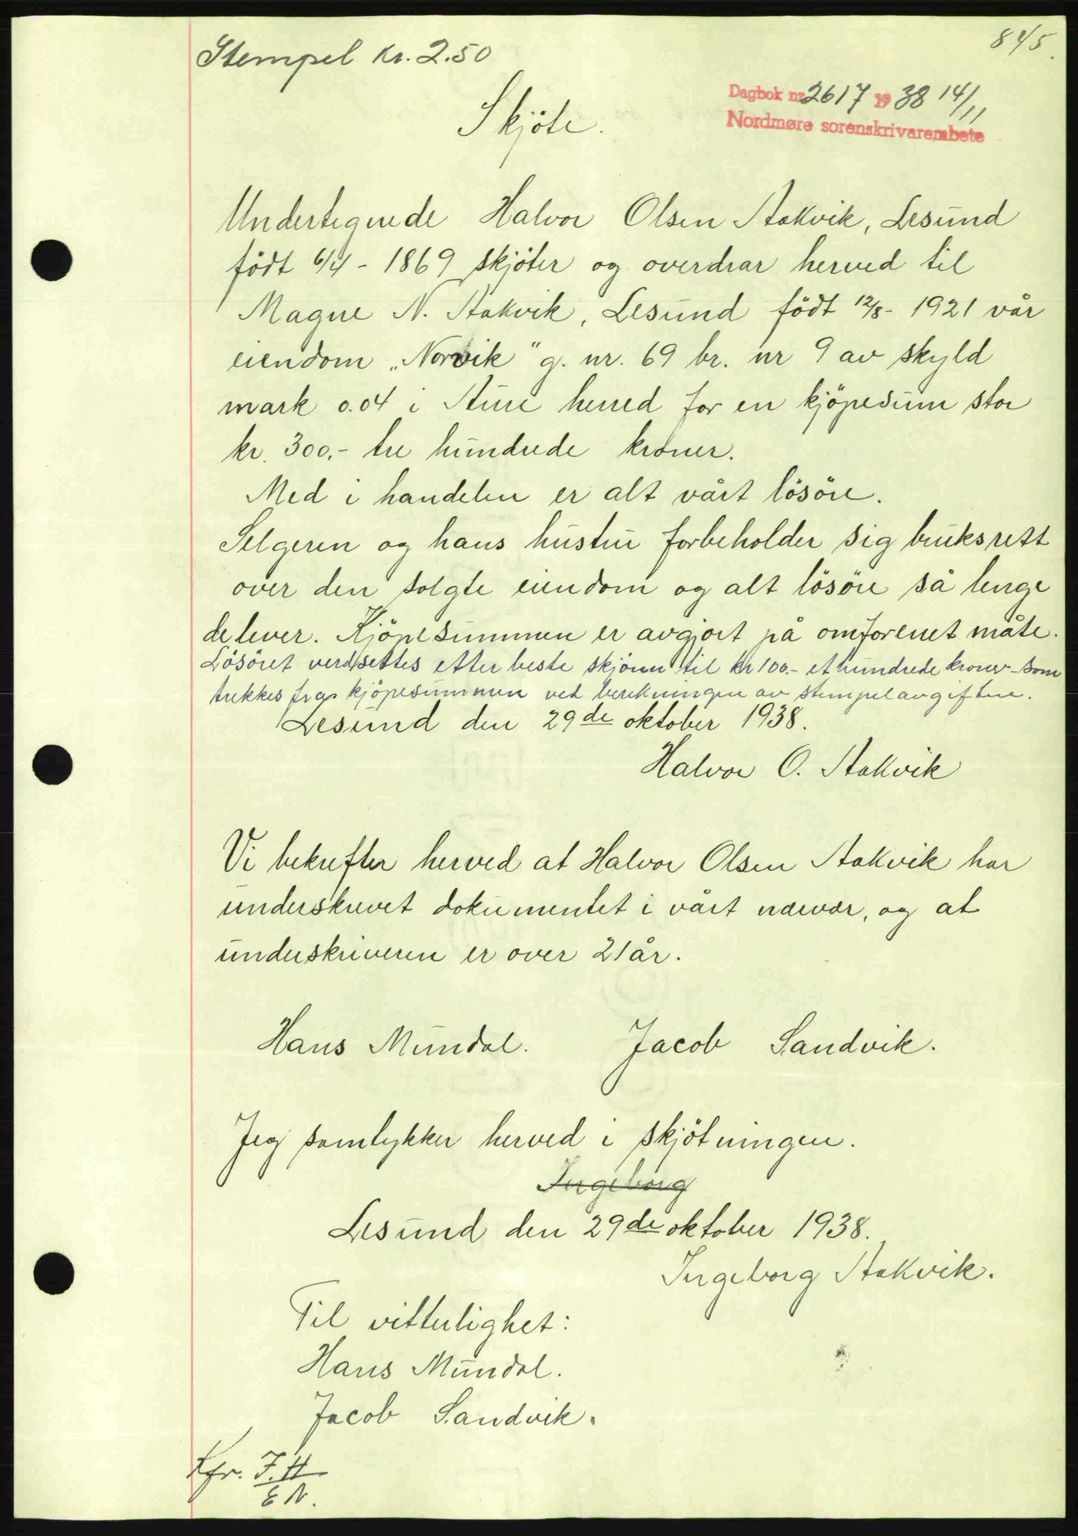 845.
Stempel kr. 2.50
Dagbok nr. 2617 1938 14/11
Nordmøre sorenskrivarembete
Skjöte.
Undertegnede Halvor Olsen Aakvik, Lesund
født 6/4 - 1869 skjöter og overdrar herved til
Magne N. Aakvik, Lesund født 12/8 - 1921 vår
eiendom „Norvik" g. nr. 69 br. nr 9 av skyld
mark 0.04 i Aure herred for en kjöpesum stor
kr. 300,- tre hundrede kroner.
Med i handelen er alt vårt lösöre.
Selgeren og hans hustru forbeholder sig bruksrett
over den solgte eiendom og alt lösöre så lenge
de lever. Kjöpesummen er avgjort på omforenet måte.
Lösöret verdsettes efter beste skjönn til kr 100.- et hundrede kroner - som
trekkes fra kjöpesummen ved berekningen av stempelavgiften.
Lesund den 29de oktober 1938.
Halvor O. Aakvik
Vi bekrefter herved at Halvor Olsen Aakvik har
underskrevet dokumentet i vårt nærvær, og at
underskriveren er over 21 år.
Hans Mundal. Jacob Sandvik.
Jeg samtykker herved i skjötningen.
Ingeborg
Lesund den 29de oktober 1938.
Ingeborg Aakvik.
Til vitterlighet:
Hans Mundal.
Jacob Sandvik.
Kfr. F.H
E N.